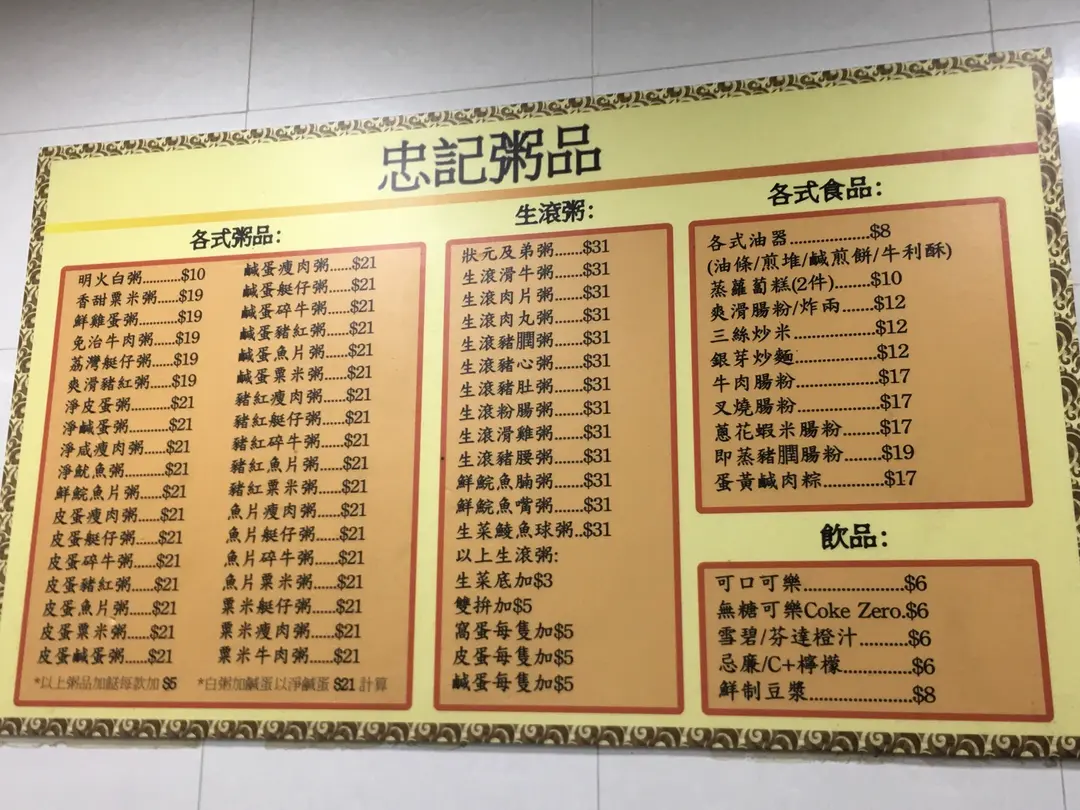 忠記粥品
各式粥品:
明火白粥.........$10
香甜粟米粥.....$19
鮮雞蛋粥.........$19
免治牛肉粥.....$19
荔灣艇仔粥.....$19
爽滑豬紅粥.....$19
淨皮蛋粥..........$21
淨鹹蛋粥..........$21
淨咸瘦肉粥.....$21
淨魷魚粥..........$21
鮮鯇魚片粥......$21
皮蛋瘦肉粥......$21
皮蛋艇仔粥......$21
皮蛋碎牛粥......$21
皮蛋豬紅粥......$21
皮蛋魚片粥......$21
皮蛋粟米粥......$21
皮蛋鹹蛋粥......$21
鹹蛋瘦肉粥.....$21
鹹蛋艇仔粥.....$21
鹹蛋碎牛粥.....$21
鹹蛋豬紅粥.....$21
鹹蛋魚片粥.....$21
鹹蛋粟米粥.....$21
豬紅瘦肉粥.....$21
豬紅艇仔粥.....$21
豬紅碎牛粥.....$21
豬紅魚片粥.....$21
豬紅粟米粥.....$21
魚片瘦肉粥.....$21
魚片艇仔粥.....$21
魚片碎牛粥.....$21
魚片粟米粥.....$21
粟米艇仔粥.....$21
粟米瘦肉粥.....$21
粟米牛肉粥.....$21
*以上粥品加餸每款加 $5 *白粥加鹹蛋以淨鹹蛋 $21 計算
生滾粥:
狀元及弟粥......$31
生滾滑牛粥......$31
生滾肉片粥......$31
生滾肉丸粥......$31
生滾豬膶粥......$31
生滾豬心粥......$31
生滾豬肚粥......$31
生滾粉腸粥......$31
生滾滑雞粥......$31
生滾豬腰粥......$31
鮮鯇魚腩粥......$31
鮮鯇魚嘴粥......$31
生菜鯪魚球粥..$31
以上生滾粥:
生菜底加$3
雙拚加$5
窩蛋每隻加$5
皮蛋每隻加$5
鹹蛋每隻加$5
各式食品:
各式油器................$8
(油條/煎堆/鹹煎餅/牛利酥)
蒸蘿蔔糕(2件).......$10
爽滑腸粉/炸兩.......$12
三絲炒米................$12
銀芽炒麵................$12
牛肉腸粉................$17
叉燒腸粉................$17
蔥花蝦米腸粉.......$17
即蒸豬膶腸粉.......$19
蛋黃鹹肉粽............$17
飲品:
可口可樂....................$6
無糖可樂Coke Zero.$6
雪碧/芬達橙汁..........$6
忌廉/C+檸檬..............$6
鮮制豆漿....................$8